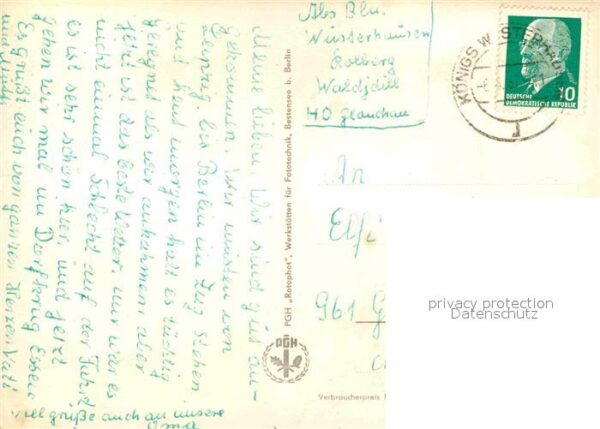 Meine Lieben. Wir sind gut an-
gekommen. Wir mussten von
Leipzig bis Berlin im Zug stehen
und heut morgen hat es tüchtig
geregnet als wir ankahmen aber
jetzt ist das beste Wetter. mir war es
nicht einmal Schlecht auf der Fahrt
es ist sehr schön hier, und jetzt
gehen wir mal im Dorfkrug Essen
Es grüßt euch von ganzen Herzen Vati
und Mutti
viel grüße auch an unsere
Oma
PGH „Rotophot", Werkstätten für Fototechnik, Bestensee b. Berlin
PGH
Verbraucherpreis
Abs Blu.
Wüsterhausen
Kolberg
Waldidill
HO Glauchau
KÖNIGS WUSTERHAU
DEUTSCHE
DEMOKRATISCHE REPUBLIK
10
An
Elf
961 G
privacy protection
Datenschutz